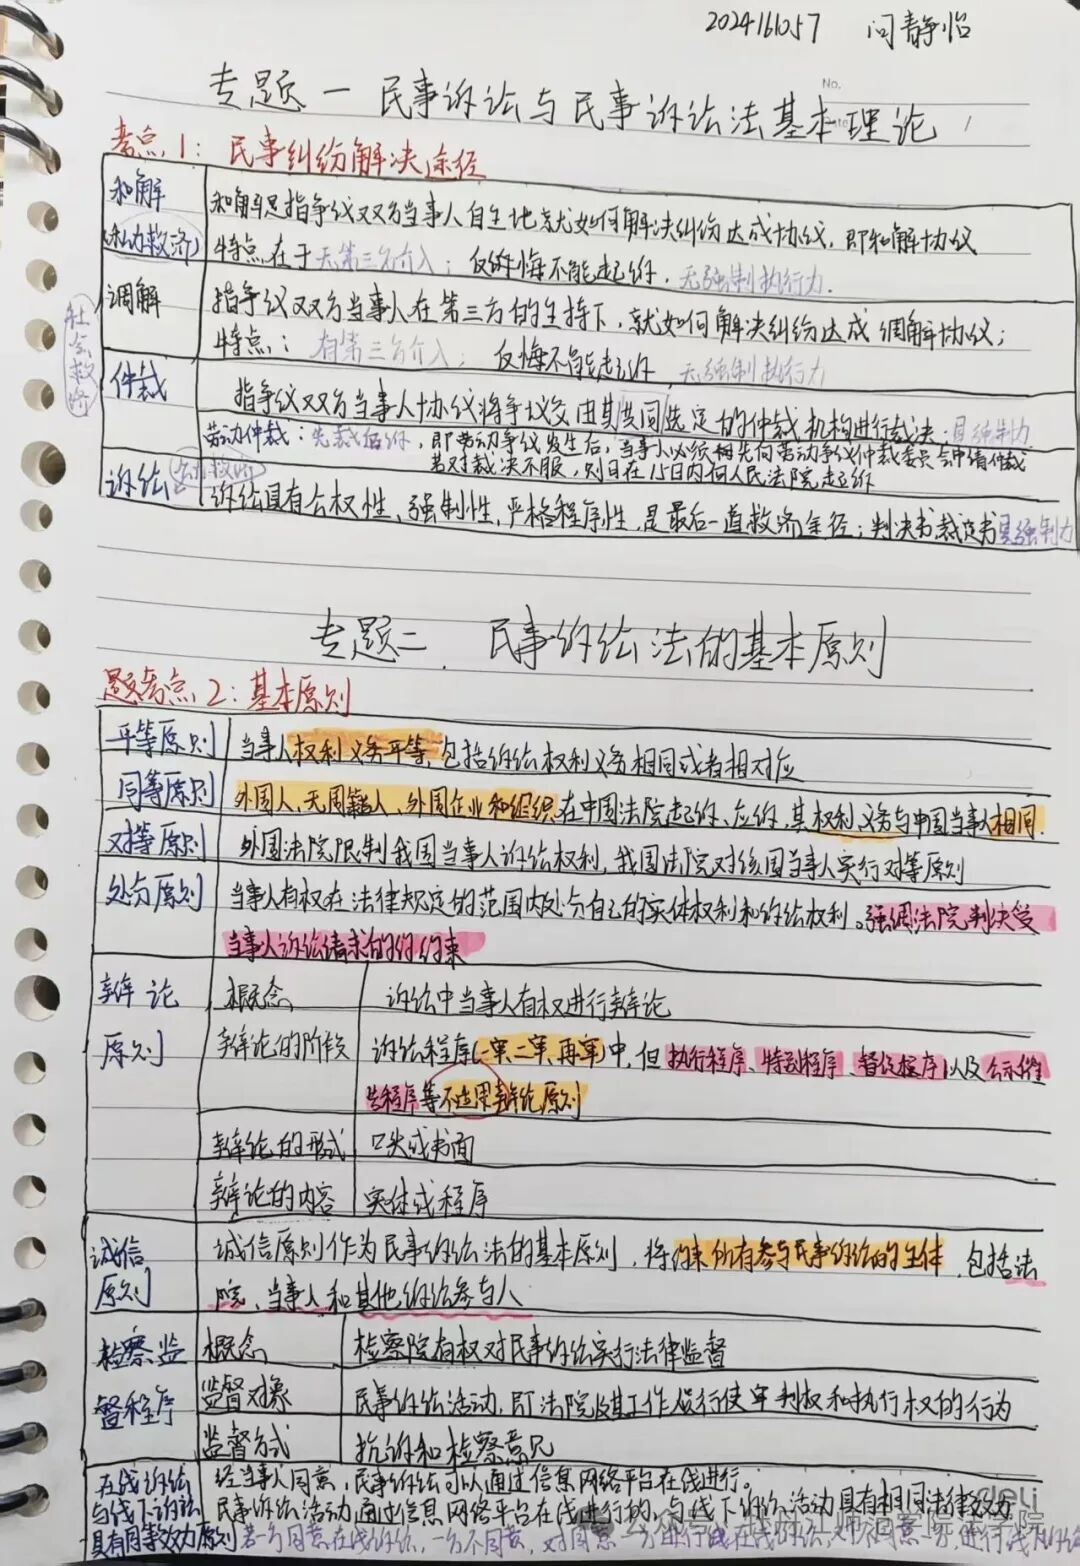 2024161057 问静怡
No.
专题一 民事诉讼与民事诉讼法基本理论
考点1：民事纠纷解决途径
和解
(私力救济)
和解是指争议双方当事人自主地就如何解决纠纷达成协议，即和解协议
特点在于无第三方介入；反悔不能起诉，无强制执行力.
社会救济
调解
指争议双方当事人在第三方的主持下，就如何解决纠纷达成调解协议；
特点：有第三方介入；反悔不能起诉，无强制执行力
仲裁
指争议双方当事人协议将争议交由其共同选定的仲裁机构进行裁决；具强制力
劳动仲裁：先裁后诉，即劳动争议发生后，当事人必须先向劳动争议仲裁委员会申请仲裁
若对裁决不服，则可在15日内向人民法院起诉
诉讼(公力救济)
诉讼具有公权性、强制性，严格程序性，是最后一道救济途径；判决书裁定书具强制力
专题二 民事诉讼法的基本原则
考点2：基本原则
平等原则 当事人权利义务平等，包括诉讼权利义务相同或者相对应
同等原则 外国人、无国籍人、外国企业和组织在中国法院起诉、应诉，其权利义务与中国当事人相同.
对等原则 外国法院限制我国当事人诉讼权利，我国法院对该国当事人实行对等原则
处分原则 当事人有权在法律规定的范围内处分自己的实体权利和诉讼权利。强调法院判决受
当事人诉讼请求的约束
辩论
原则
概念 诉讼中当事人有权进行辩论
辩论的阶段 诉讼程序(一审、二审、再审)中，但执行程序、特别程序、督促程序以及公示催
告程序等不适用辩论原则
辩论的形式 口头或书面
辩论的内容 实体或程序
诚信
原则
诚信原则作为民事诉讼法的基本原则，将约束所有参与民事诉讼的主体，包括法
院、当事人和其他诉讼参与人
检察监
督程序
概念 检察院有权对民事诉讼实行法律监督
监督对象 民事诉讼活动，即法院及其工作人员行使审判权和执行权的行为
监督方式 抗诉和检察意见
在线诉讼
与线下诉讼
具有同等效力原则
经当事人同意，民事诉讼可以通过信息网络平台在线进行。
民事诉讼活动通过信息网络平台在线进行的，与线下诉讼活动具有相同法律效力
若一方同意在线诉讼，一方不同意，对同意一方进行在线诉讼，对不同意一方进行线下诉讼
deli
公众号